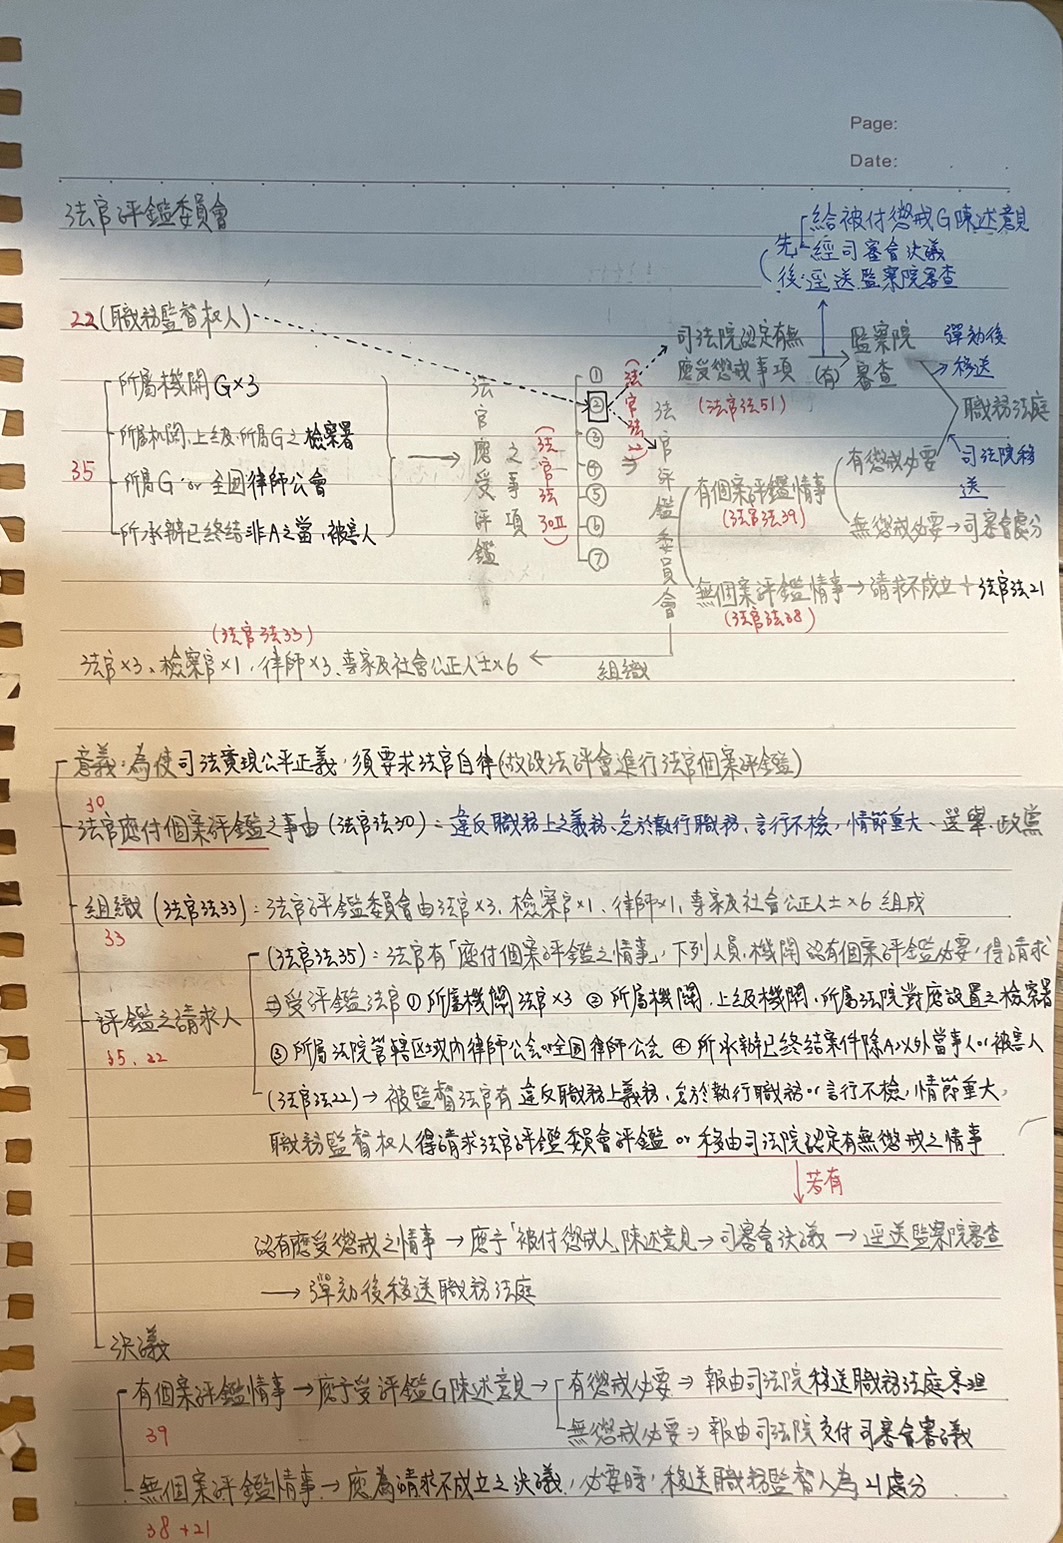 Page:
Date:
法官評鑑委員會
給被付懲戒G陳述意見
先 經司審會決議
後:逕送監察院審查
22(職務監督權人)
司法院認定有無
應受懲戒事項
(有)
監察院
審查
彈劾後
移送
(法官法51)
職務法庭
所屬機關G×3
所屬机関、上級、所屬G之檢察署
35
所屬G or 全国律師公會
所承辦已終結非A之當,被害人
法官應受評鑑
之事項
(法官法30II)
①
②
③
④
⑤
⑥
⑦
法官評鑑委員會
有個案評鑑情事
(法官法39)
有懲戒必要
司法院移
送
無懲戒必要→司審會處分
無個案評鑑情事→請求不成立+法官法21
(法官法38)
(法官法33)
法官×3、檢察官×1、律師×3、專家及社會公正人士×6
組織
意義:為使司法實現公平正義,須要求法官自律(故設法評會進行法官個案評鑑)
30
法官應付個案評鑑之事由(法官法30):違反職務上之義務、怠於執行職務、言行不檢,情節重大、選舉、政黨
組織(法官法33):法官評鑑委員會由法官×3、檢察官×1、律師×1、專家及社會公正人士×6 組成
33
(法官法35):法官有「應付個案評鑑之情事」,下列人員、機關認有個案評鑑必要,得請求
評鑑之請求人
35、22
⇒受評鑑法官①所屬機關法官×3 ②所屬機關、上級機關、所屬法院對應設置之檢察署
③所屬法院管轄区域内律師公会or全国律師公会 ④所承辦已終結案件除A以外當事人or被害人
(法官法22)→被監督法官有違反職務上義務、怠於執行職務or言行不檢,情節重大,
職務監督權人得請求法官評鑑委員會評鑑 or 移由司法院認定有無懲戒之情事
若有
認有應受懲戒之情事→應予「被付懲戒人」陳述意見→司審會決議→逕送監察院審查
→彈劾後移送職務法庭
決議
有個案評鑑情事→應予受評鑑G陳述意見→有懲戒必要⇒報由司法院移送職務法庭審理
39
無懲戒必要⇒報由司法院交付司審會審議
無個案評鑑情事→應為請求不成立之決議,必要時,移送職務監督人為21處分
38+21